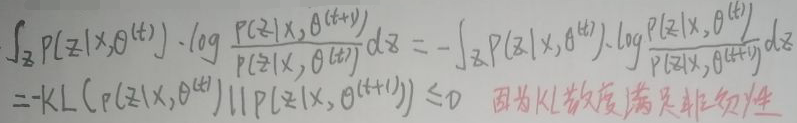 ∫_z P(z|x,θ^(t)) · log P(z|x,θ^(t+1)) / P(z|x,θ^(t)) dz = -∫_z P(z|x,θ^(t)) · log P(z|x,θ^(t)) / P(z|x,θ^(t+1)) dz
=-KL(P(z|x,θ^(t)) || P(z|x,θ^(t+1))) ≤0 因为KL散度满足非负性